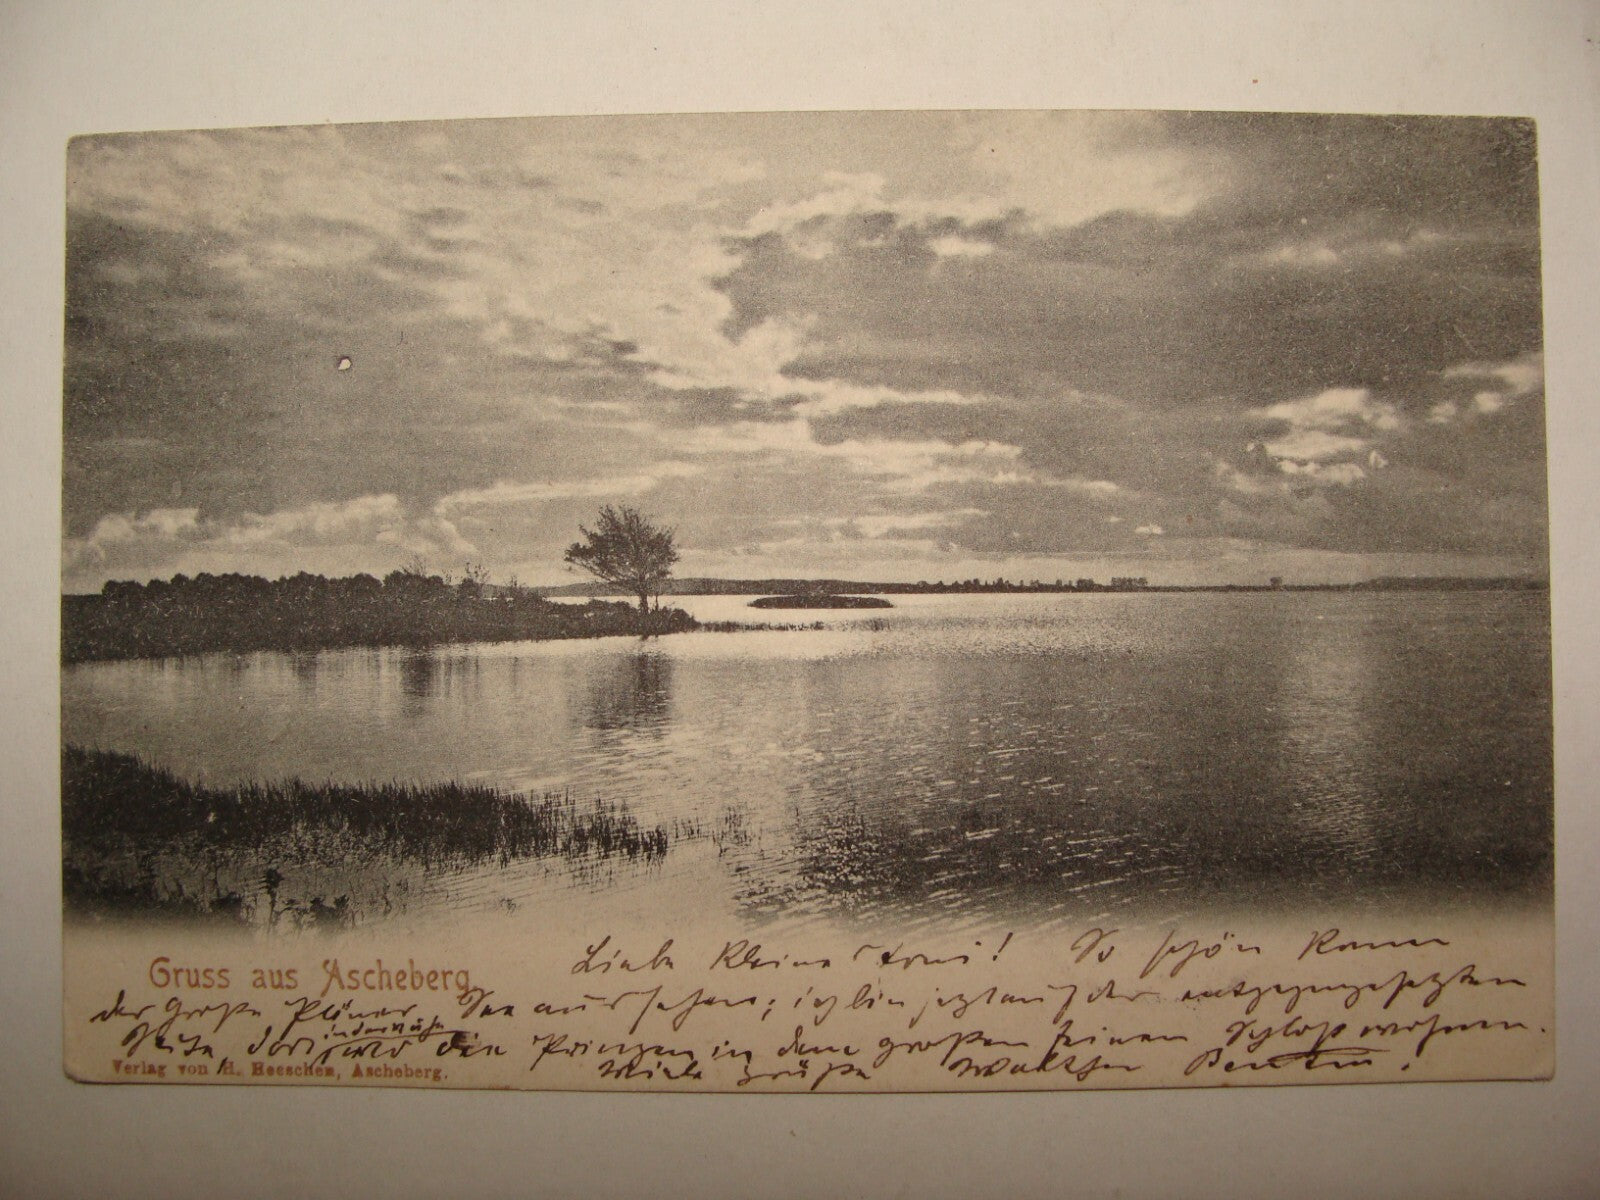 Gruss aus Ascheberg
Liebe kleine Toni! So schön kann
der große Plöner See aussehen; ich bin jetzt auf der entgegengesetzten
Seite, dort in der Nähe wo die Prinzen in dem großen feinen Schloß wohnen.
Viele Grüße Walther
Verlag von H. Heeschen, Ascheberg.